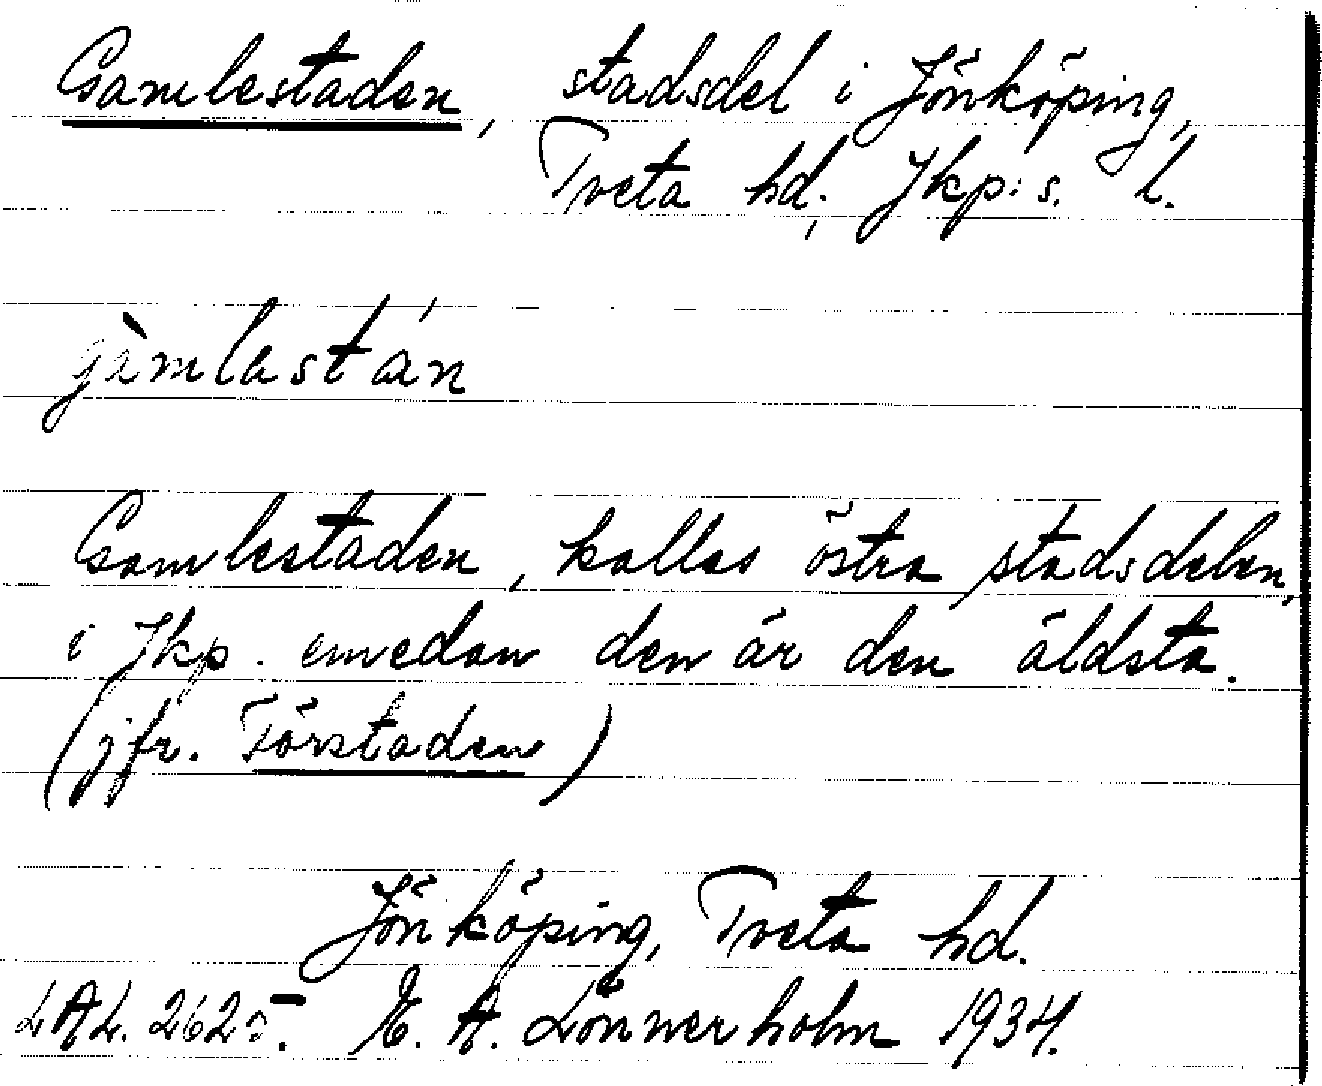 Gamlestaden, stadsdel i Jönköping,
Tveta hd, Jkp:s. l.
gàmlastán
Gamlestaden, kallas östra stadsdelen,
i Jkp. emedan den är den äldsta.
(jfr. Förstaden)
Jönköping, Tveta hd.
LAL. 2625. E. A. Lönnerholm 1934.